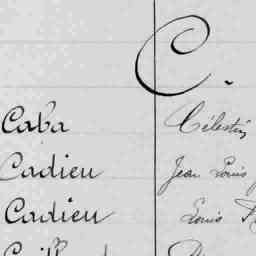 C.
Caba Célestin
Cadieu Jean Louis
Cadieu Louis